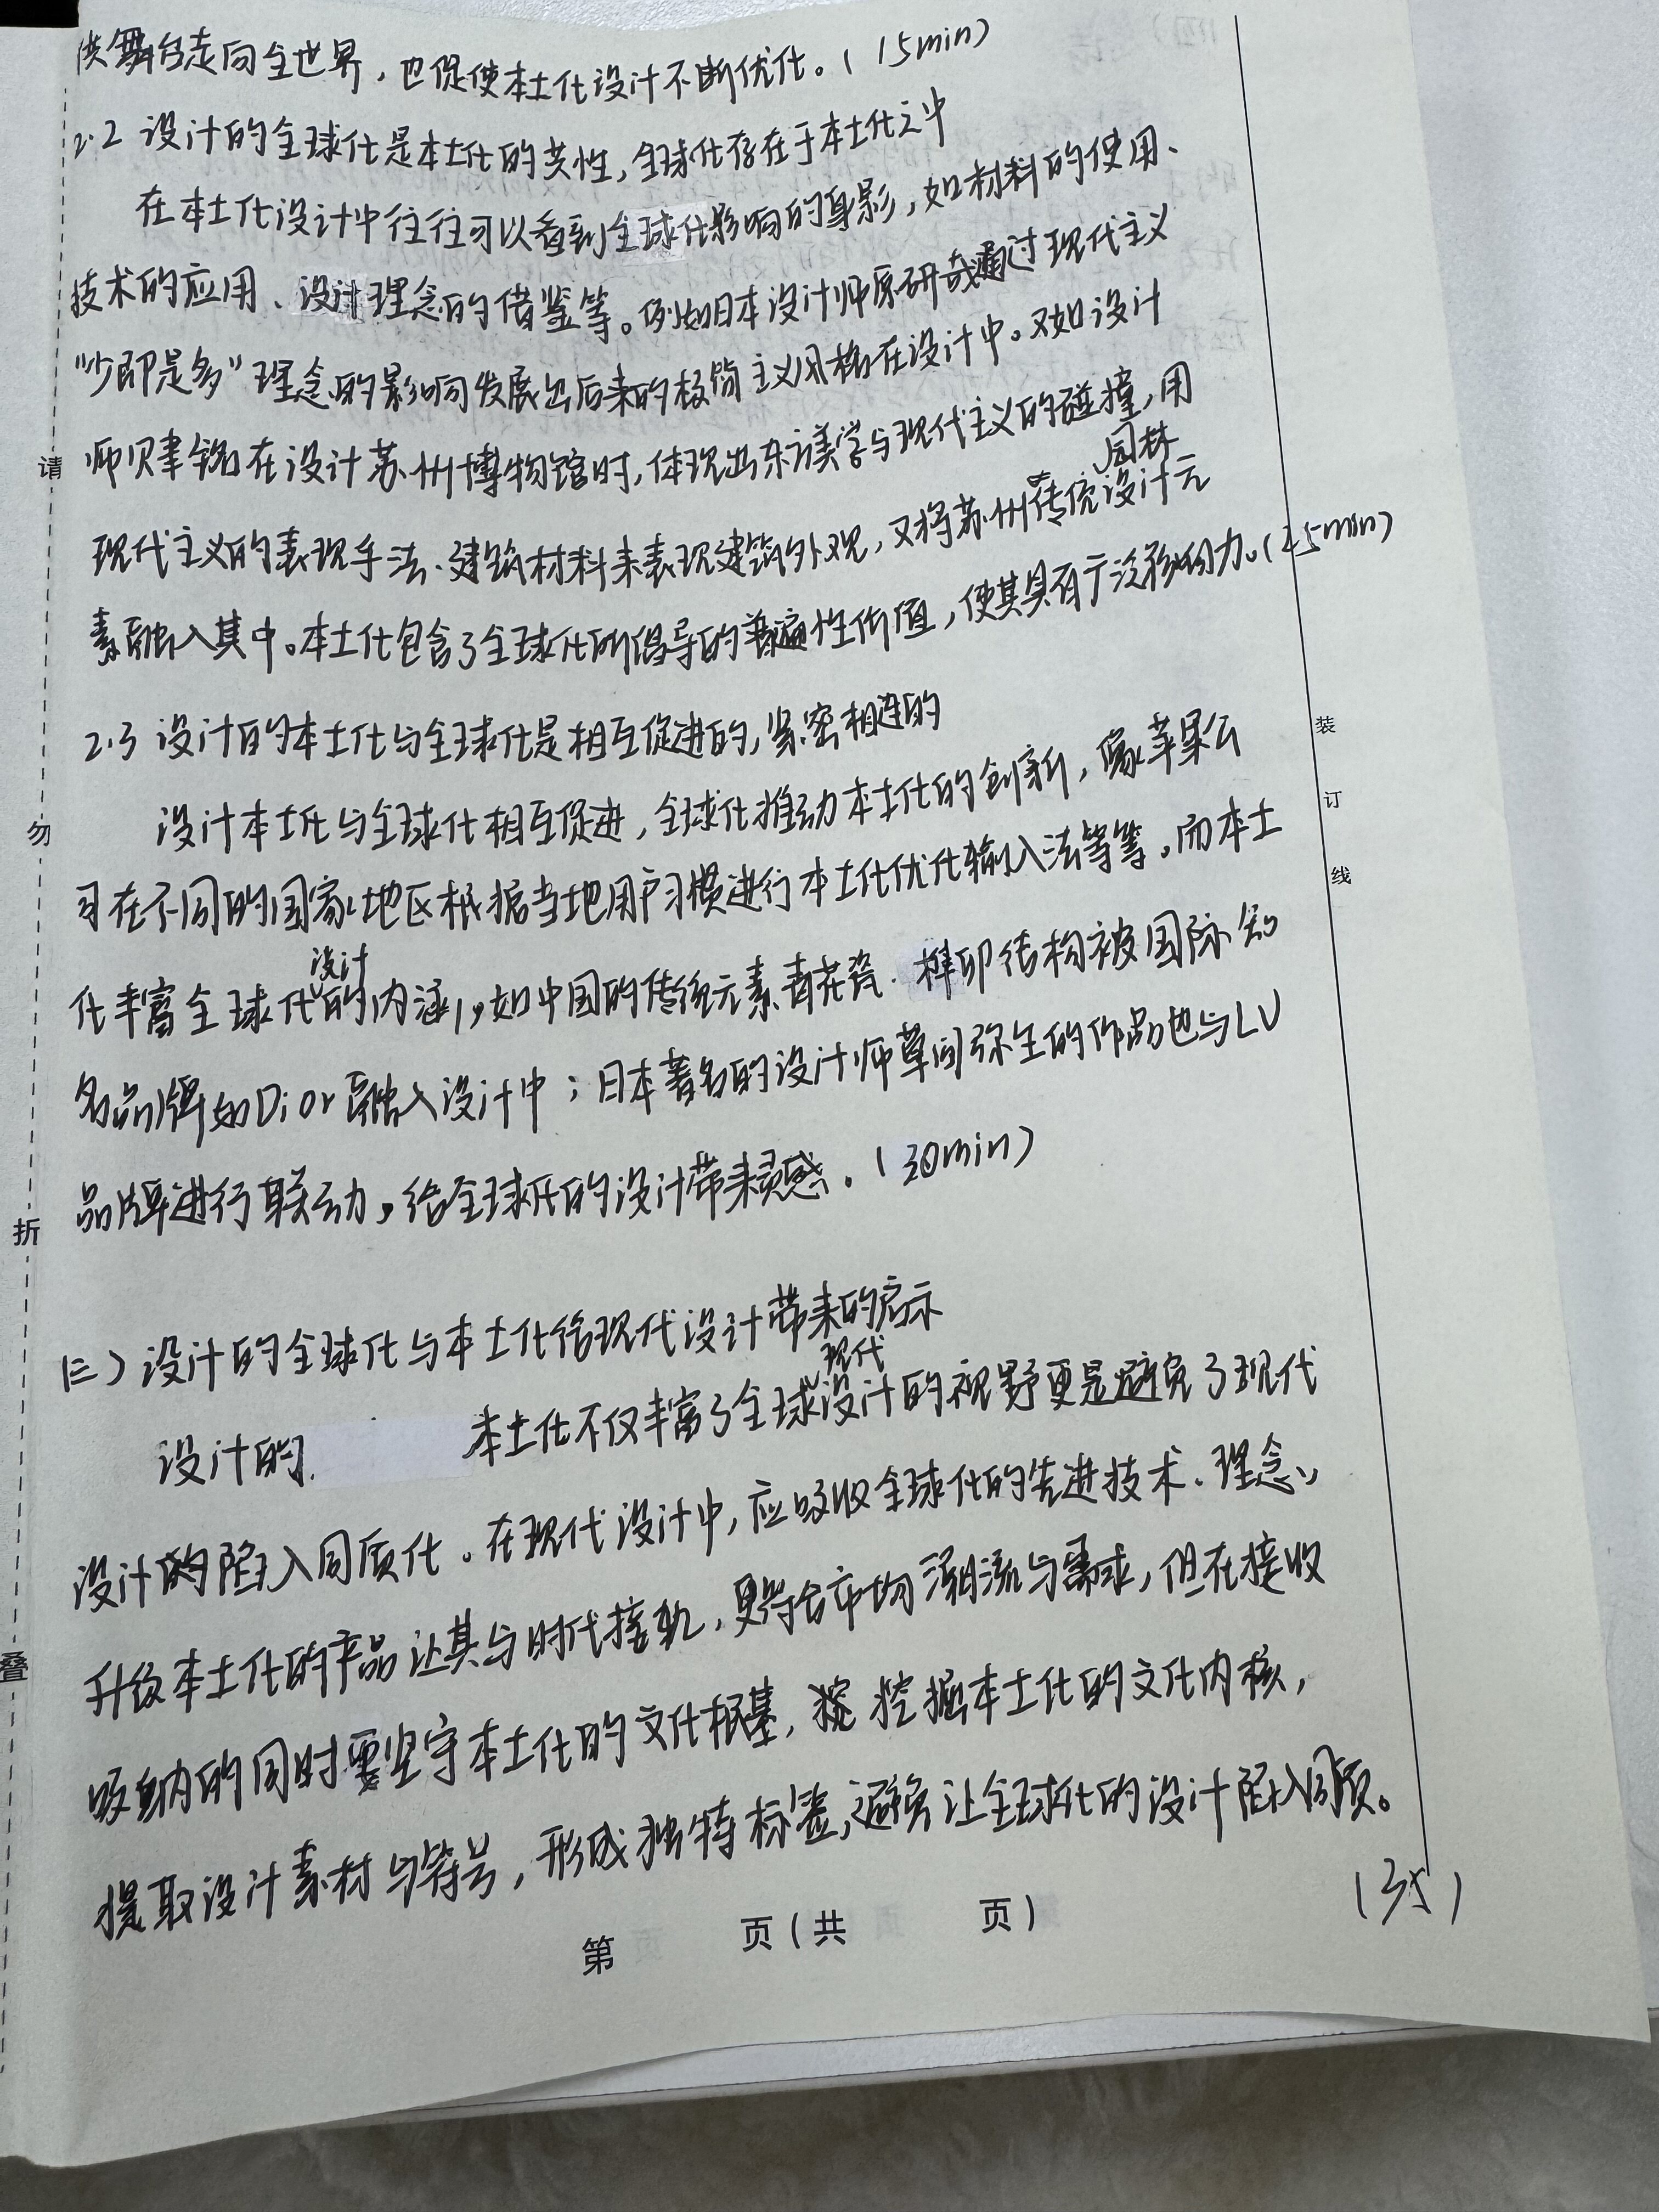 供舞台走向全世界，也促使本土化设计不断优化。（15min）
2.2 设计的全球化是本土化的共性，全球化存在于本土化之中
在本土化设计中往往可以看到全球化影响的身影，如材料的使用、
技术的应用、设计理念的借鉴等。例如日本设计师原研哉通过现代主义
“少即是多”理念的影响发展出后来的极简主义风格在设计中。又如设计
师贝聿铭在设计苏州博物馆时，体现出东方美学与现代主义的碰撞，用
园林
现代主义的表现手法、建筑材料来表现建筑外观，又将苏州传统设计元
素融入其中。本土化包含了全球化所倡导的普遍性价值，使其具有广泛影响力。（25min）
2.3 设计的本土化与全球化是相互促进的，紧密相连的
设计本土化与全球化相互促进，全球化推动本土化的创新，像苹果公
司在不同的国家地区根据当地用户习惯进行本土化优化输入法等等。而本土
设计
化丰富全球化的内涵，如中国的传统元素青花瓷、榫卯结构被国际知
名品牌如Dior融入设计中；日本著名的设计师草间弥生的作品也与LV
品牌进行联动，给全球化的设计带来灵感。（30min）
（三）设计的全球化与本土化给现代设计带来的启示
现代
设计的 本土化不仅丰富了全球设计的视野更是避免了现代
设计的陷入同质化。在现代设计中，应吸收全球化的先进技术、理念，
升级本土化的产品让其与时代接轨，更符合市场潮流与需求，但在接收
吸纳的同时要坚守本土化的文化根基，挖掘本土化的文化内核，
提取设计素材与符号，形成独特标签，避免让全球化的设计陷入同质。
（35）
第 页（共 页）
请
勿
折
叠
装
订
线